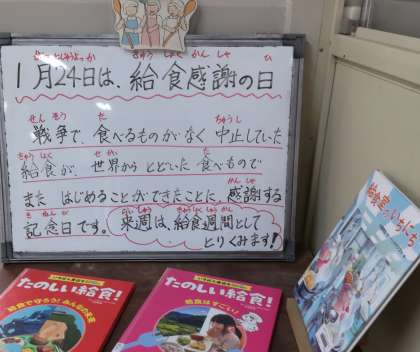 いちがつにじゅうよっか きゅう しょく かん しゃ ひ
1月24日は、給食感謝の日
せん そう た ちゅうし
戦争で、食べるものがなく中止していた
きゅう しょく せ かい た
給食が、世界からとどいた食べもので
かん しゃ
また はじめることができたことに、感謝する
き ねん び らいしゅう きゅうしょく しゅうかん
記念日です。来週は、給食週間として
とりくみます!
たのしい給食!
給食で守ろう!みんなの未来
たのしい給食!
給食はすごい!
給食室のいちにち